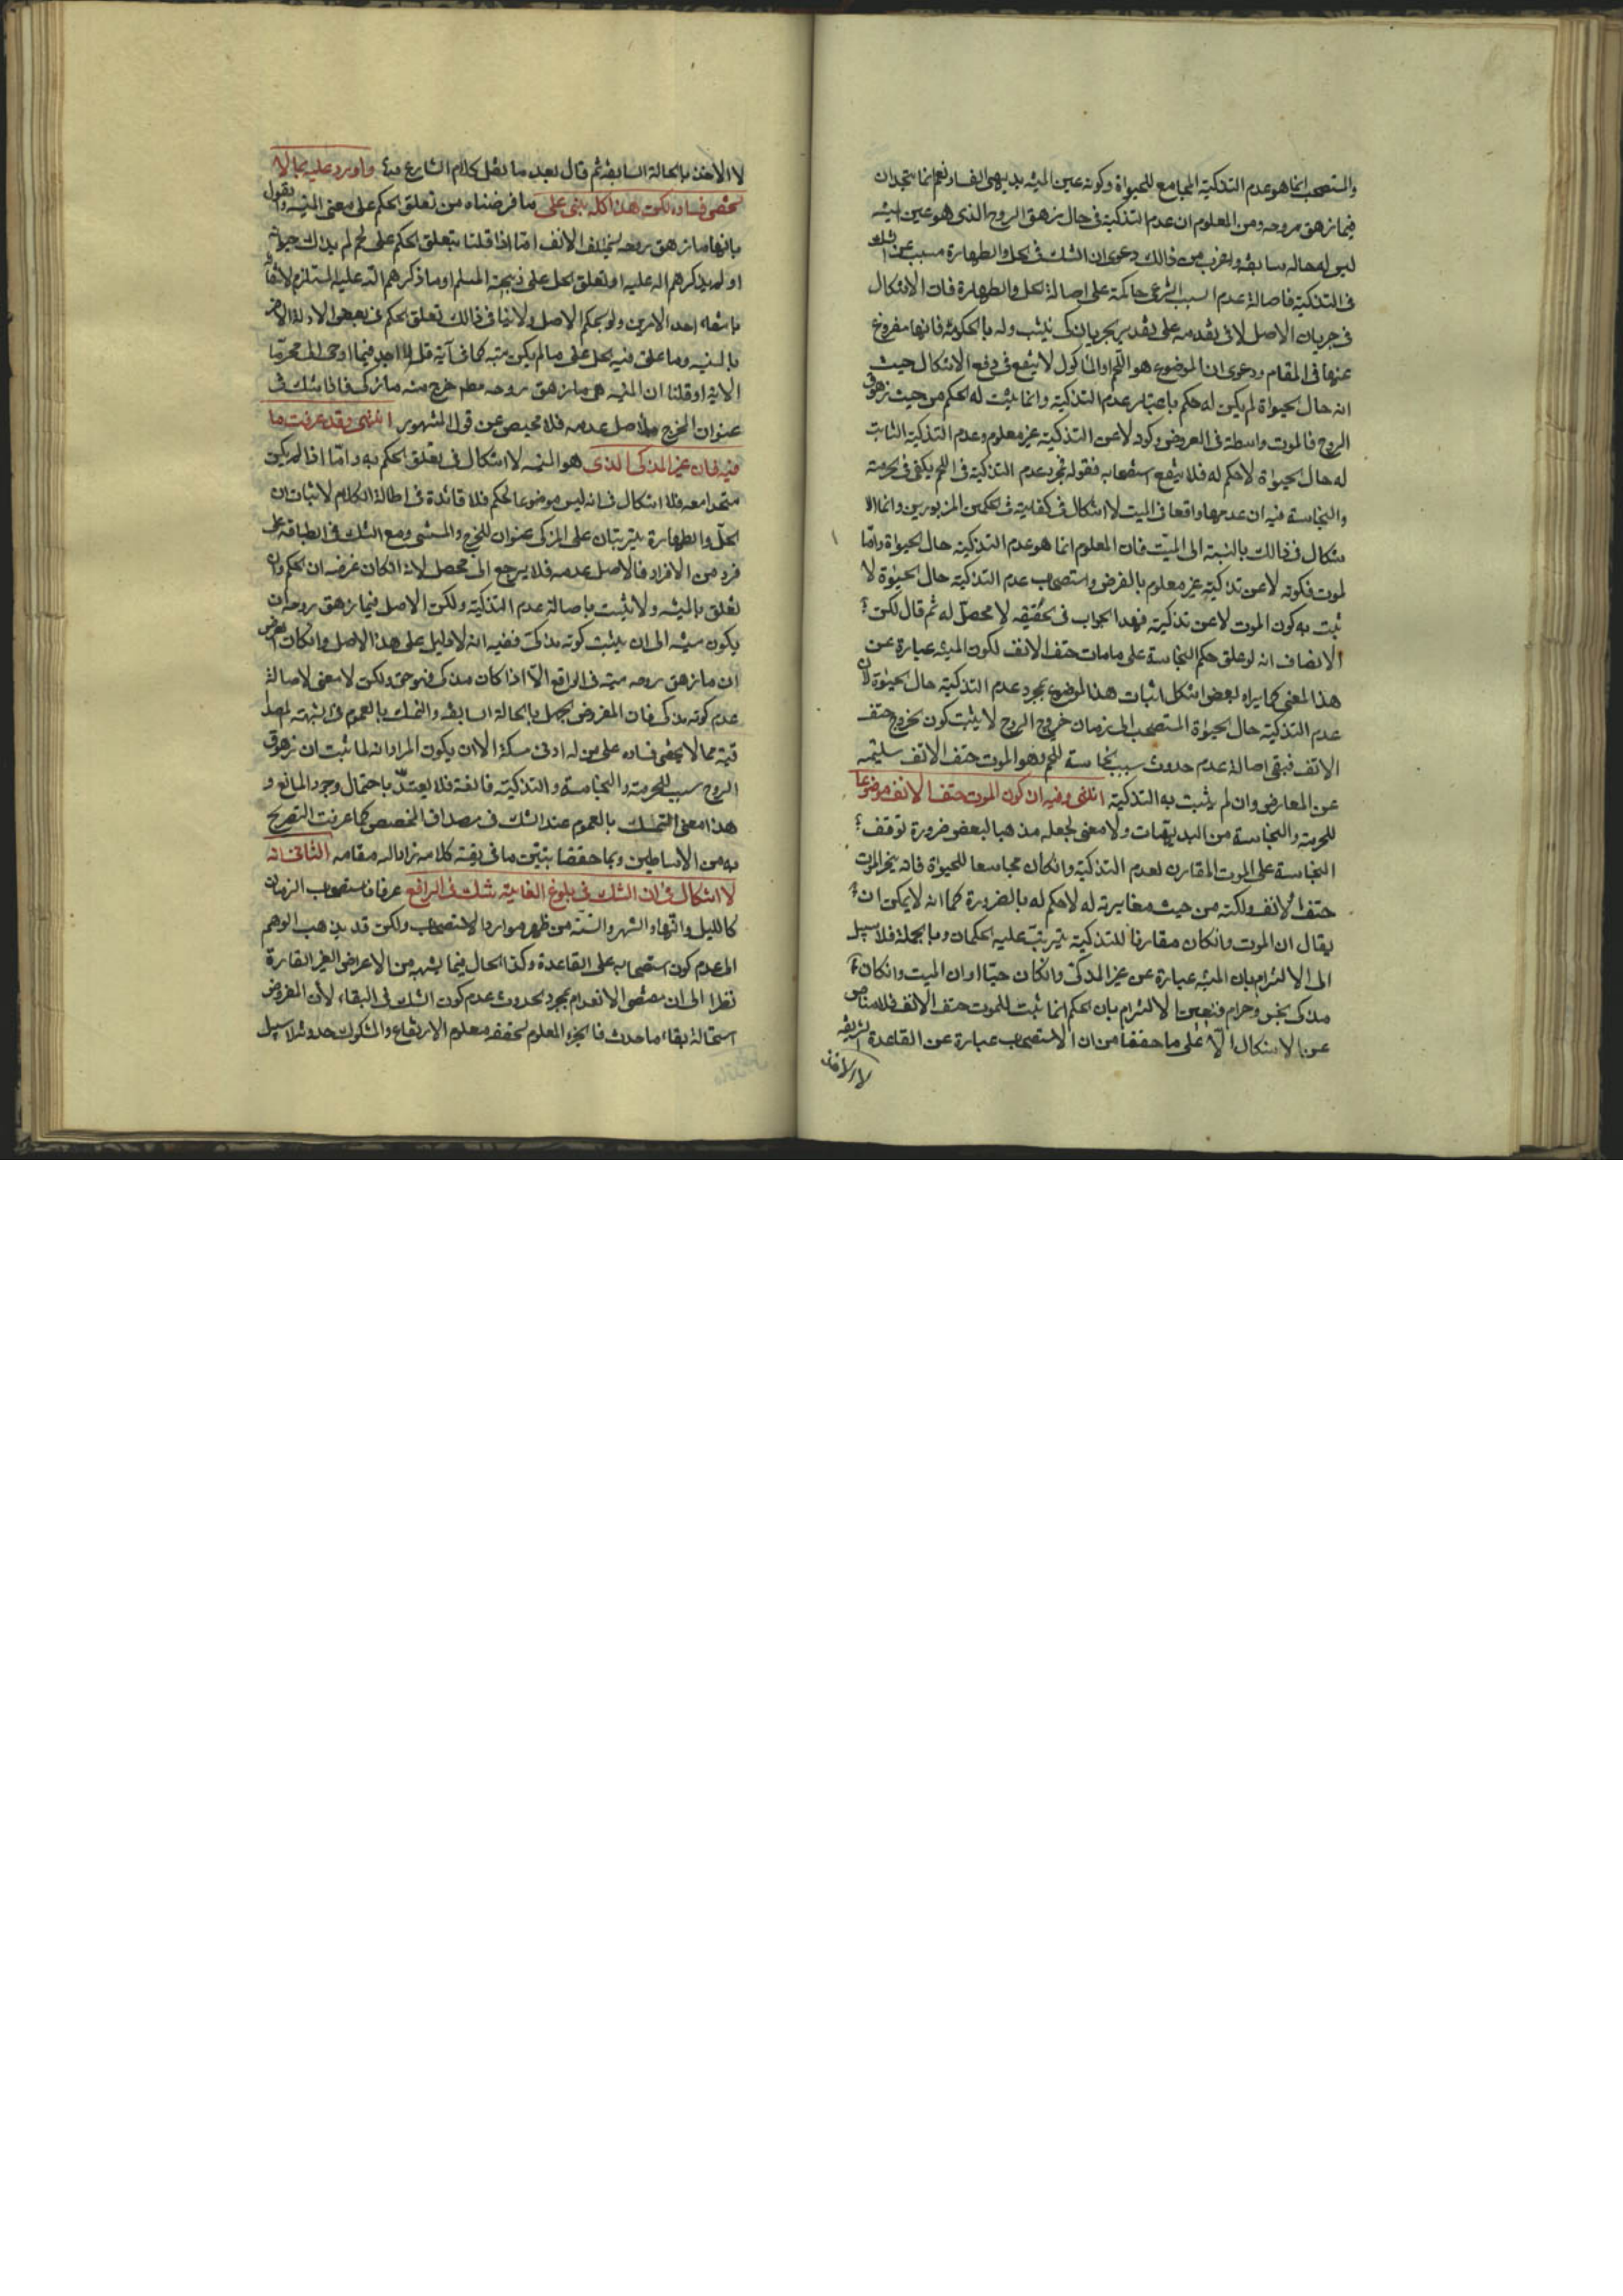 والمستصحب انما هو عدم التذكية المجامع للحيوة وكونه عين الميتة بديهى الفساد نعم انما يتحدان
فيما زهق روحه ومن المعلوم ان عدم التذكية فى حال زهق الروح الذى هو عين الميتة
ليس له حالة سابقة واغرب من ذالك دعوى ان الشك فى الحل والطهارة مسبب عن الشك
فى التذكية فاصالة عدم السبب الشرعى حاكمة على اصالة الحل والطهارة فان الاشكال
فى جريان الاصل لا فى تقدمه على تقدير جريانه كى يتشبث وله بالحكومة فانها مفروغ
عنها فى المقام ودعوى ان الموضوع هو اللحم او المأكول لا ينفع فى دفع الاشكال حيث
انه حال الحيوة لم يكن له حكم باعتبار عدم التذكية وانما يثبت له الحكم من حيث زهوق
الروح فالموت واسطة فى العروض وكونه لا عن التذكية غير معلوم وعدم التذكية الثابت
له حال الحيوة لا حكم له فلا ينفع استصحابه فقوله مجرد عدم التذكية فى اللحم يكفى فى حرمته
والنجاسة فيه ان عدمها واقعا فى الميت لا اشكال فى كفايته فى الحكمين المزبورين وانما الا
شكال فى ذالك بالنسبة الى الميّت فان المعلوم انما هو عدم التذكية حال الحيوة وامّا
لموت فكونه لا عن تذكية غير معلوم بالفرض واستصحاب عدم التذكية حال الحيوة لا
يثبت به كون الموت لا عن تذكية فهذا الجواب فى الحقيقة لا محصّل له ثم قال لكن
الانصاف انه لو علق حكم النجاسة على ما مات حتف الانف لكون الميتة عبارة عن
هذا المعنى كما يراه بعض اشكل اثبات هذا الموضوع بمجرد عدم التذكية حال الحيوة لان
عدم التذكية حال الحيوة المستصحب الى زمان خروج الروح لا يثبت كون الخروج حتف
الانف فيبقى اصالة عدم حدوث سبب نجاسة اللحم وهو الموت حتف الانف سليمة
عن المعارض وان لم يثبت به التذكية انتهى وفيه ان كون الموت حتف الانف موضوعا
للحرمة والنجاسة من البديهيات ولا معنى لجعله مذهبا لبعض ضرورة توقف
النجاسة على الموت المقارن لعدم التذكية وانكان مجامعا للحيوة فانه يخرالموت
حتف الانف ولكنه من حيث مغايرته له لا حكم له بالضرورة كما انه لا يمكن ان
يقال ان الموت وانكان مقارنا للتذكية يترتب عليه الحكمان وبالجملة فلا سبيل
الى الالتزام بان الميتة عبارة عن غير المذكى وانكان حيّا او ان الميت وانكان
مذكى نجس وحرام فتعين الالتزام بان الحكم انما يثبت للموت حتف الانف فلا مناص
عن الاشكال الّا على ما حققنا من ان الاستصحاب عبارة عن القاعدة الشريفة
لا الاخذ
لا الاخذ بالحالة السابقة ثم قال بعد ما نقل كلام الشارح وما اورد عليه بما لا
يخفى فساده لكن هذا كله يبنى على ما فرضناه من تعلق الحكم على معنى الميتة والقول
بانها ما زهق روحه بحتف الانف امّا اذا قلنا بتعلق الحكم على لحم لم يذك حيوانه
او لم يذكر اسم الله عليه او تعلق الحل على ذبيحة المسلم او ما ذكر اسم الله عليه المستلزم لانتفائه
بانتفاء احد الامرين ولو بحكم الاصل ولا ينافى ذالك تعلق الحكم فى بعض الادلة الاخر
بالميتة وما علق فيه الحل على ما لم يكن ميتة كما فى آية قل لا اجد فيما اوحى الى محرّما
الاية او قلنا ان الميتة هى ما زهق روحه مطم خرج منه ما ذكى فاذا شك فى
عنوان المخرج فالاصل عدمه فلا محيص عن قول المشهور انتهى وقد عرفت ما
فيه فان غير المذكى الذى هو الميتة لا اشكال فى تعلق الحكم به وامّا اذا لم يكن
متحدا معه فلا اشكال فى انه ليس موضوعا للحكم فلا فائدة فى اطالة الكلام لاثبات ان
الحلّ والطهارة يترتبان على المذكى عنوان المخرج والمستثنى ومع الشك فى انطباقه على
فرد من الافراد فالاصل عدمه فلا يرجع الى محصل لانه انكان غرضه ان الحكم وان
تعلق بالميتة ولا يثبت باصالة عدم التذكية ولكن الاصل فيما زهق روحه ان
يكون ميتة الى ان يثبت كونه مذكى ففيه انه لا دليل على هذا الاصل وانكان الغرض
ان ما زهق روحه ميتة فى الواقع الّا اذا كان مذكى فهو حق ولكن لا معنى لاصالة
عدم كونه مذكى فان المفروض الجهل بالحالة السابقة والتمسك بالعموم فى الشبهة المصدا
قية مما لا يخفى فساده على من له ادنى مسكة الا ان يكون المراد انه لما ثبت ان زهوق
الروح سبب للحرمة والنجاسة والتذكية مانعة فلا يعتدّ باحتمال وجود المانع و
هذا معنى التمسك بالعموم عند الشك فى مصداق المخصص كما عرفت التصريح
به من الاساطين وبما حققنا يتبيّن ما فى بقية كلامه زاد الله مقامه الثانى انه
لا اشكال فى ان الشك فى بلوغ الغاية شك فى الرافع عرفا فاستصحاب الزمان
كالليل والنهار والشهر والسنة من ظهر موارد الاستصحاب ولكن قد يذهب الوهم
الى عدم كون استصحابه على القاعدة وكذا الحال فيما يشبهه من الاعراض الغير القارة
نظرا الى ان مقتضى الانعدام بمجرد الحدوث عدم كون الشك فى البقاء لأن المفروض
استحالة بقاء ما حدث فالجزء المعلوم تحققه معلوم الارتفاع والمشكوك حدوثه لا سبيل